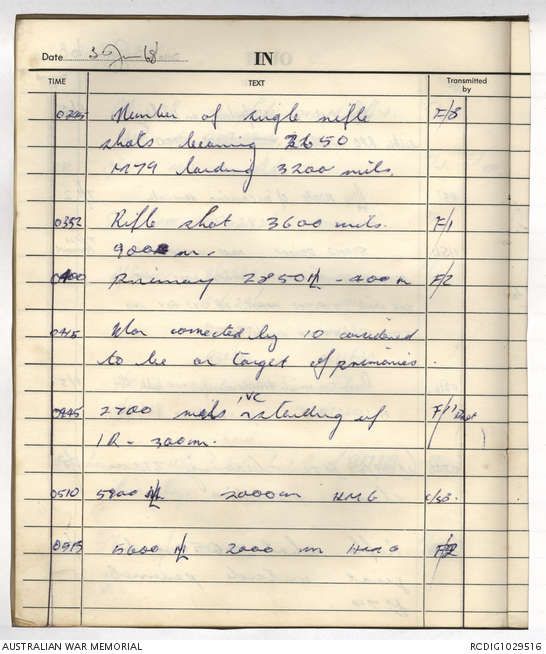 Date 30 Jun 68 IN
TIME TEXT Transmitted by
0345 Number of single rifle F/3
shots bearing 2650
M79 landing 3200 mils.
0352 Rifle shot 3600 mils. F/1
900 m.
0400 Primary 2850 M - 400 m F/2
0415 Mor corrected by 10 considered
to be on target of primaries.
0445 2700 mils VC standing up F/1
1R - 300m.
0510 5800 M 2000m HMG C/S3.
0515 5600 M 2000 m HMG F/2
AUSTRALIAN WAR MEMORIAL RCDIG1029516